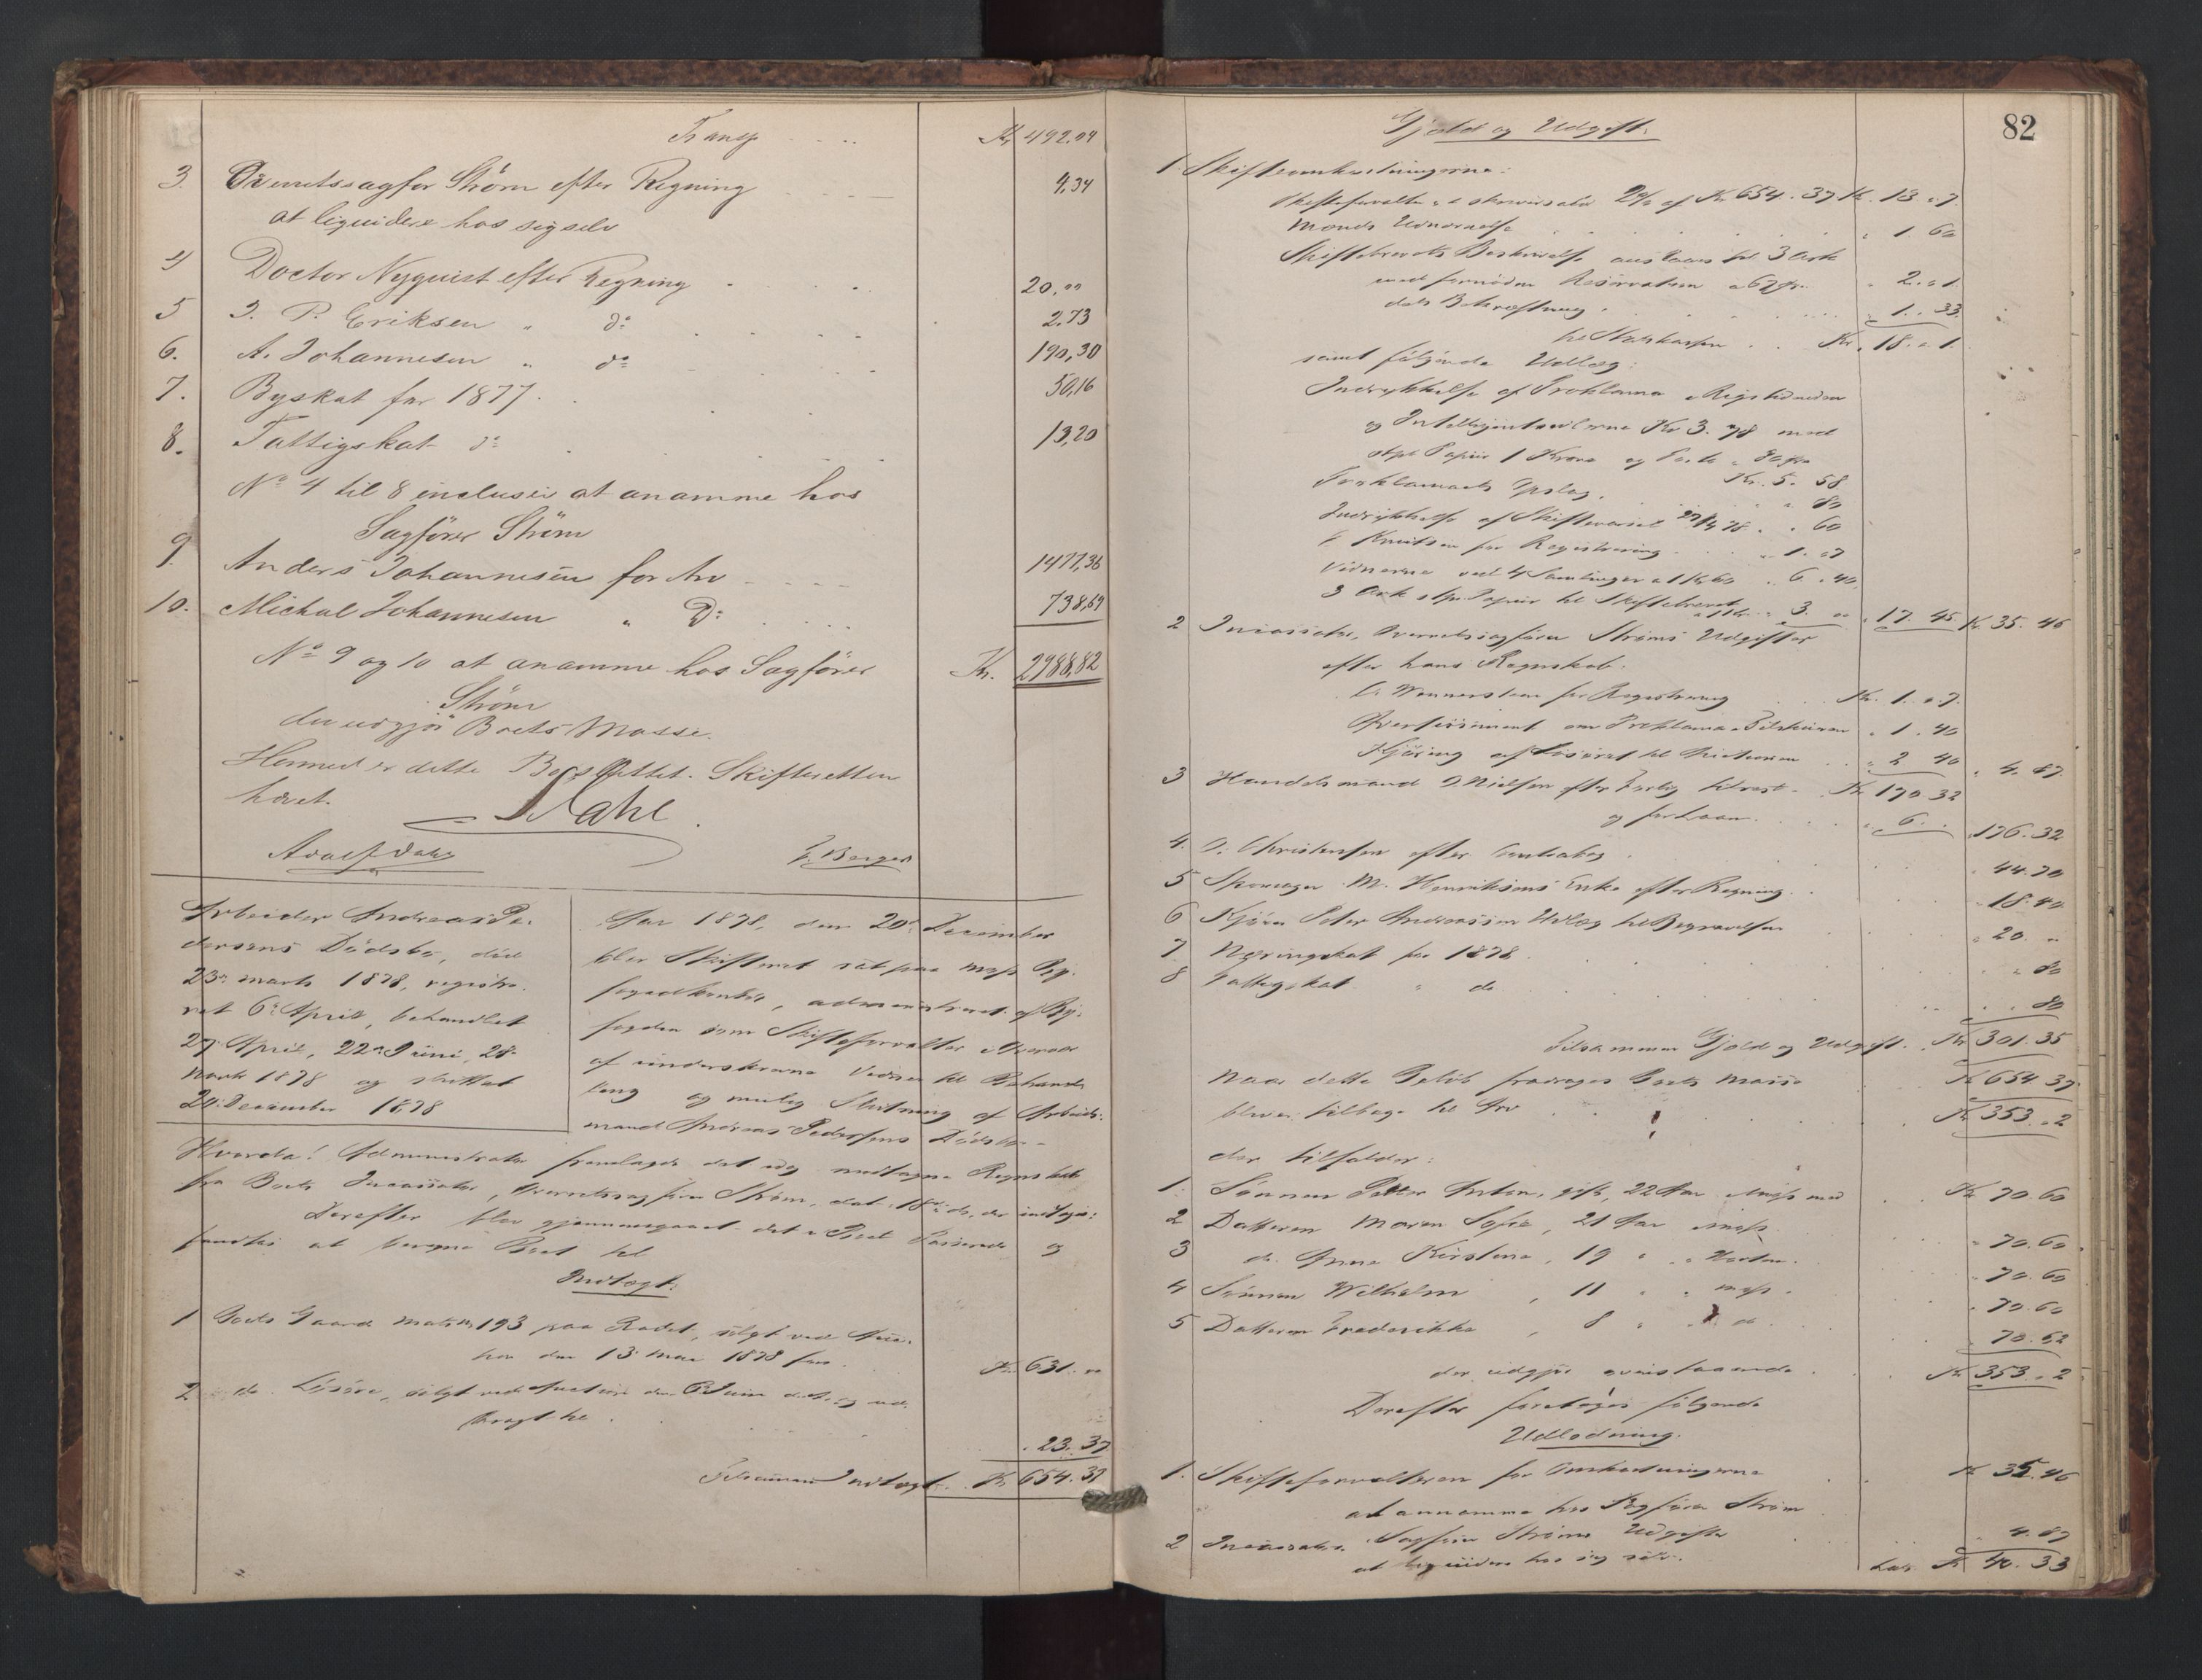 Transp. Kr 492.09
3. Overretssagfør Strøm efter Regning 4,34
at liquidere hos sig selv
4 Doctor Nyquist efter Regning 20,00
5 P. Eriksen " do 2,73
6. A. Johannesen " do 190,30
7. Byskat for 1877 50,16
8. Fattigskat do 13,20
No 4 til 8 inclusiv at anamme hos
Sagfører Strøm
9. Anders Johannesen for Arv 1477,36
10. Michal Johannesen " Do 738,69
No 9 og 10 at anamme hos Sagfører Kr. 2988,82
Strøm
der udgjør Boets Masse.
Hermed er dette Bo sluttet. Skifteretten
hævet.
Arbeider Andreas Pe-
dersens Dødsbo, død
23de marts 1878, registre-
ret 6te April, behandlet
27 April, 22de Juni, 28
1878 og sluttet
20 December 1878
Aar 1878, den 20de December
blev Skifteret sat paa Moss By-
fogedkontor, administreret af By-
fogden som Skifteforvalter
af underskrevne Vidner til Behand-
ling og mulig Slutning af Arbeids-
mand Andreas Pedersens Dødsbo
Hvorda! Administrator fremlagde det idag modtagne Regnskab
fra Boets Incassator, Overretssagfører Strøm, dat. 18de ds, der indtages:
Derefter blev gjennemgaaet det Boet og
fandtes at Boet til
Indtægt:
1 Boets Gaard matr. No 193 paa solgt ved Auc-
tion den 13 Mai 1878 for Kr 631. 00
2 do. Løsøre, solgt ved Auction den 6 Juni d.A. og ud-
bragt til
" 23. 37
Tilsammen Indtægt Kr 654. 37
82
Gjæld og Udgift:
1 Skifteomkostningerne:
Skifteforvalter 2% af Kr 654. 37 Kr. 13 " 7.
" 1 60
Skiftebrevets Beskrivelse 3 Ark
" 2. " 1.
dets Bekræftning " 1. . 33.
til Statskassen Kr. 18. " 1.
samt følgende Udlæg:
Indrykkelse af Proklama i Rigstidenden
og Intelligentssedlerne Kr 3. 78 med
stpl Papir 1 Krone og Porto " 80 Øre
Kr. 5. 58
Proklamaets Opslag " " 80
Indrykkelse af Skiftevarsel " " 60
Knutsen for Registrering " 1. " 7
Vidnerne ved 4 Samlinger a 1 Kr 60 " 6. " 40
3 Ark stpl. Papir til Skiftebrevet " 3. 00 " 17. 45 Kr. 35. 46
2 Incassator, Overretssagfører Strøms Udgifter
efter hans Regnskab:
for Registrering Kr. 1. " 7.
Avertissement om Proklama i Tilskueren " 1. 40
Kjøring af Løsøret til Auctionen " 2 40 " 4. 87
3 Handelsmand Nielsen efter Kr 170 32
og for Laan " 6. " " 176. 32
4. O. Christensen efter Contrabog " 44. 70
5 M. Henriksens Enke efter Regning " 18. 40
6 Peter Andreassen Udlæg til Begravelsen " 20. "
7 Næringskat for 1878 " " 80
8 Fattigskat " do " " 80
Tilsammen Gjæld og Udgift Kr 301. 35
Naar dette Beløb fradrages Boets Masse Kr 654. 37
bliver tilbage til Arv Kr 353. " 2
der tilfalder:
1. Sønnen Petter Anton, gift, 22 Aar Moss med Kr 70. 60
2 Datteren Maren Sofie, 21 Aar Moss " 70. 60
3 do. Anne Kirstine, 19 " " " 70. 60
4 Sønnen Wilhelm, 11 " " Moss " 70. 60
5 Datteren Frederikke, 8 " do " 70. 62
der udgjør ovenstaaende Kr 353. " 2
Derefter foretages følgende
Udlodning.
1. Skifteforvalteren for Omkostningerne Kr 35. 46
at annamme hos Sagfører Strøm
2 Incassator, Sagfører Strøms Udgifter " 4. 87
at liquidere hos sig selv. Lat. Kr 40. 33